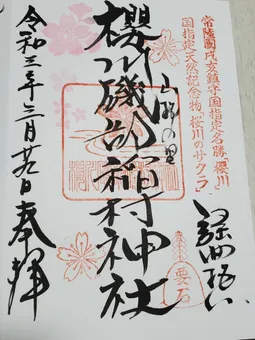 常陸國戌亥鎮守国指定名勝「桜川」
国指定天然記念物「桜川のサクラ」
山桜の里
櫻川磯部稲村神社
要石
令和三年三月廿日奉拝